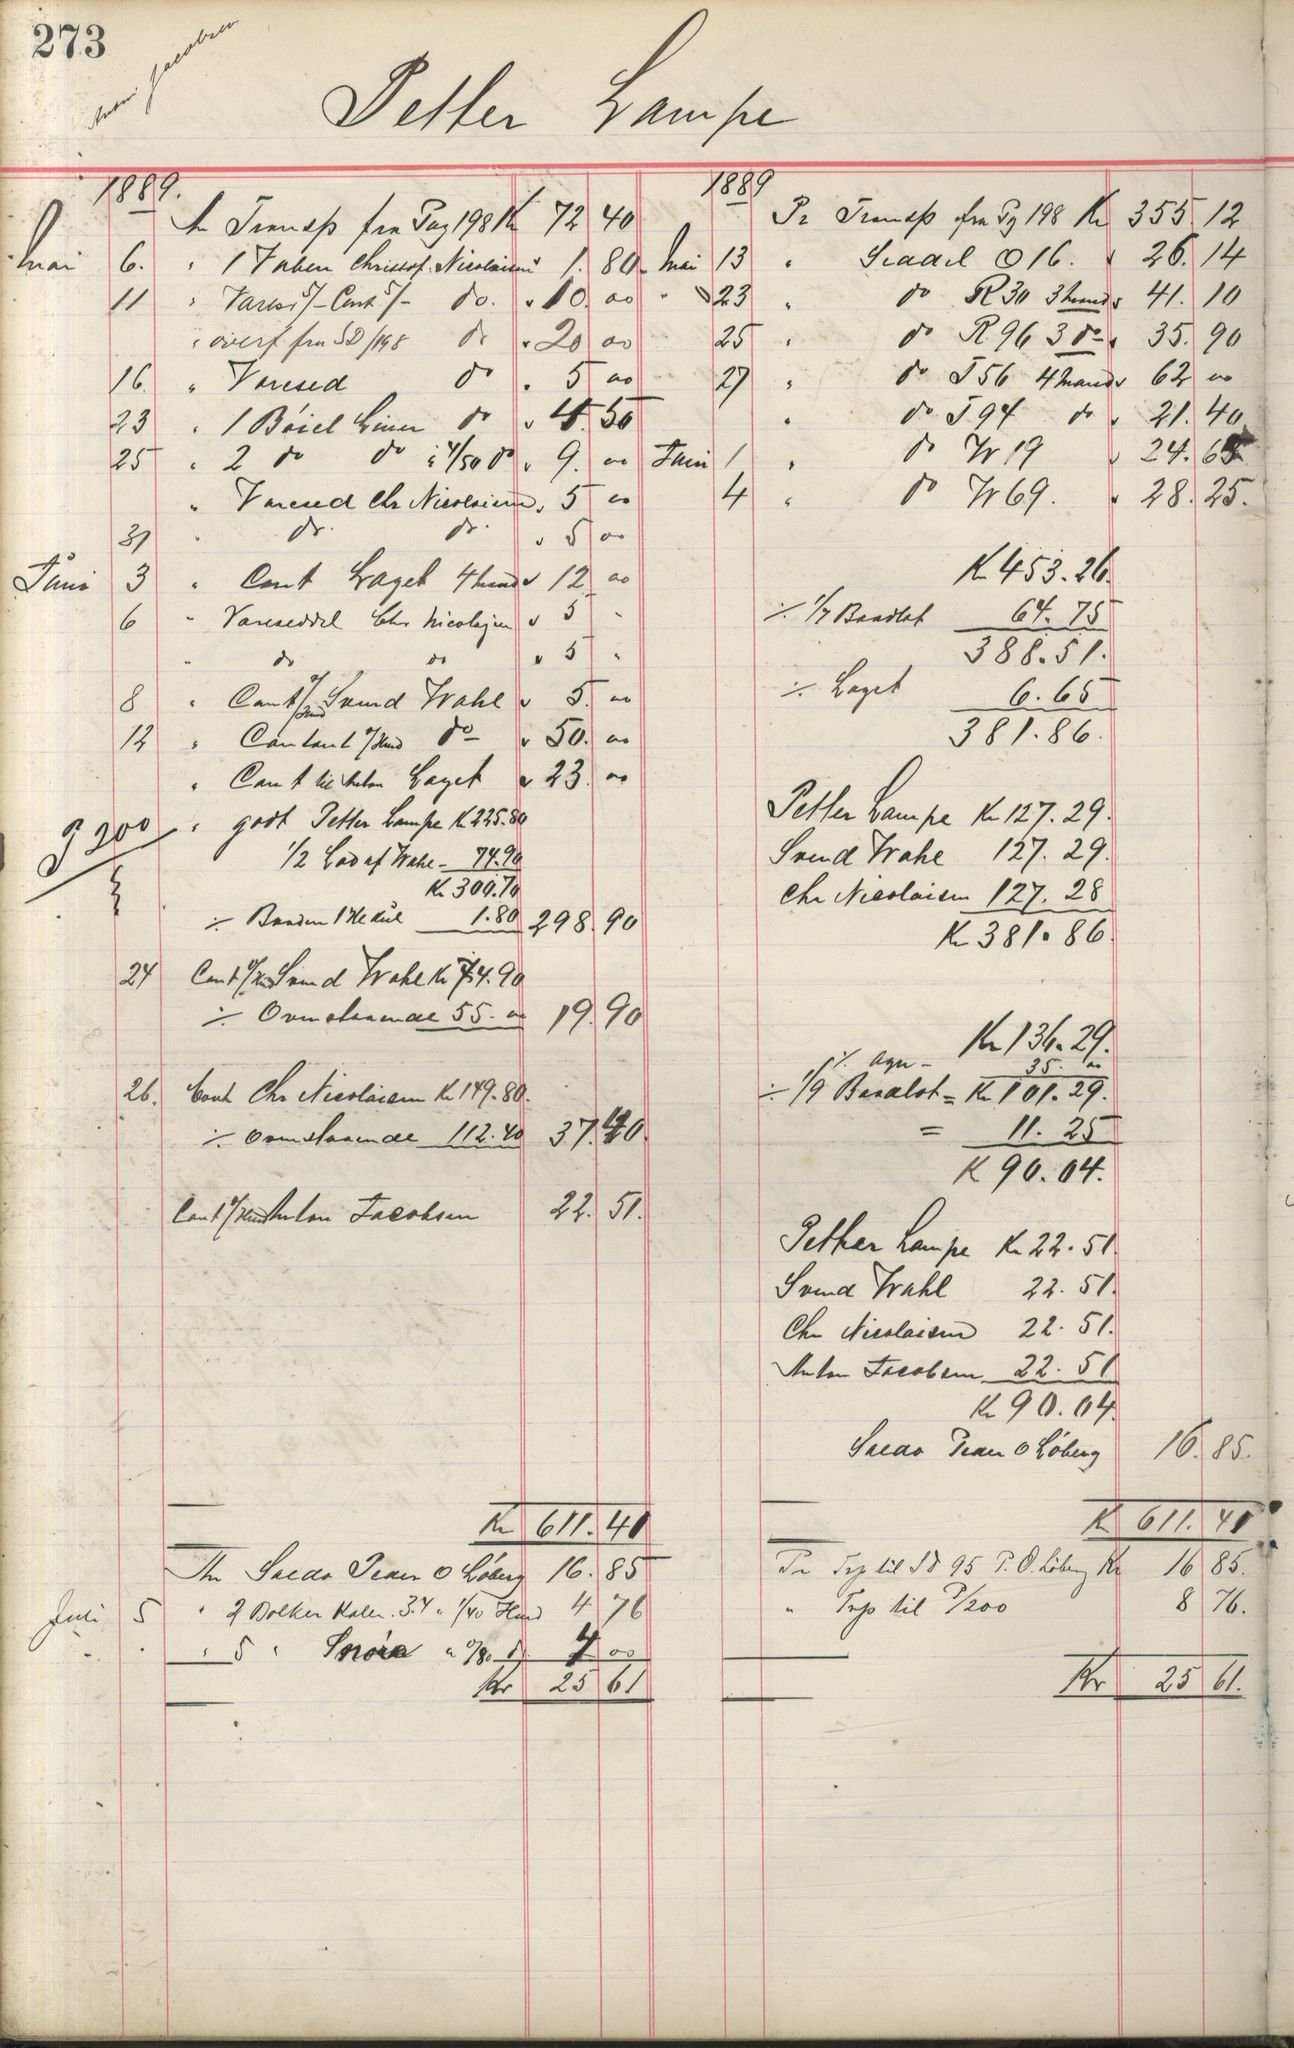 273
Anton Jacobsen
Petter Lampe
1889.
An Transp fra Pag 198 Kr 72 40
Mai 6. " 1 Christof. Nicolaisen " 1. 80
11 " Cont do. " 10. 00
" overf fra SD/198 do " 20 00
16 " Varesed do " 5 00
23 " 1 Bøiel Liner do " 4. 50
25 " 2 do do " 4/50 do " 9. 00
" Varesed Chr Nicolaisen " 5 00
31 " do. do. " 5 00
Juni 3 " Cont Laget 4 mand " 12 00
6 " Vareseddel Chr Nicolaisen " 5 "
" do do " 5 "
8 " Cont Svend Wahl " 5. 00
12 " Contant do " 50. 00
" Cont til Anton Laget " 23. 00
P 200 " godt Petter Lampe Kr 225.80
1/2 Lod af Wahl - 74.90
Kr 300.70
÷ 1.80 298. 90
24 Cont Svend Wahl Kr 74.90
÷ Ovenstaaende 55. 00 19. 90
26. Cont Chr Nicolaisen Kr 149.80.
÷ Ovenstaaende 112.40 37. 40.
Cont Anton Jacobsen 22. 51.
Kr 611. 41
An Saldo Peder O Löberg 16. 85
Juli 5 " 2 3.4 " 1/40 4 76
" " " 5 " Snøre " 0/80 do 4 00
Kr 25 61
1889
Pr Transp fra Pg 198 Kr 355. 12
Mai 13 " Seddel O 16. " 26. 14
" 23 " do R 30 3 mand " 41. 10
25 " do R 96 3 do " 35. 90
27 " do T 56 4 mand " 62 00
" do T 94 do " 21. 40
Juni 1 " do W 19 " 24. 65
4 " do W 69. " 28. 25.
Kr 453.26.
÷ 1/7 Baadlot 64. 75
388.51.
÷ Laget 6. 65
381.86.
Petter Lampe Kr 127. 29.
Svend Wahl 127. 29.
Chr Nicolaisen 127. 28
Kr 381.86.
Kr 136.29.
÷ Agn - 35. 00
÷ 1/9 Baadlot = Kr 101.29.
= 11. 25
Kr 90.04.
Petter Lampe Kr 22. 51.
Svend Wahl 22. 51.
Chr Nicolaisen 22. 51.
Anton Jacobsen 22. 51
Kr 90.04.
Saldo Peder O Löberg 16. 85.
Kr 611. 41
Pr Trp til Sd 95 P. O. Löberg Kr 16 85.
" Trp til P/200 8 76.
Kr 25 61.